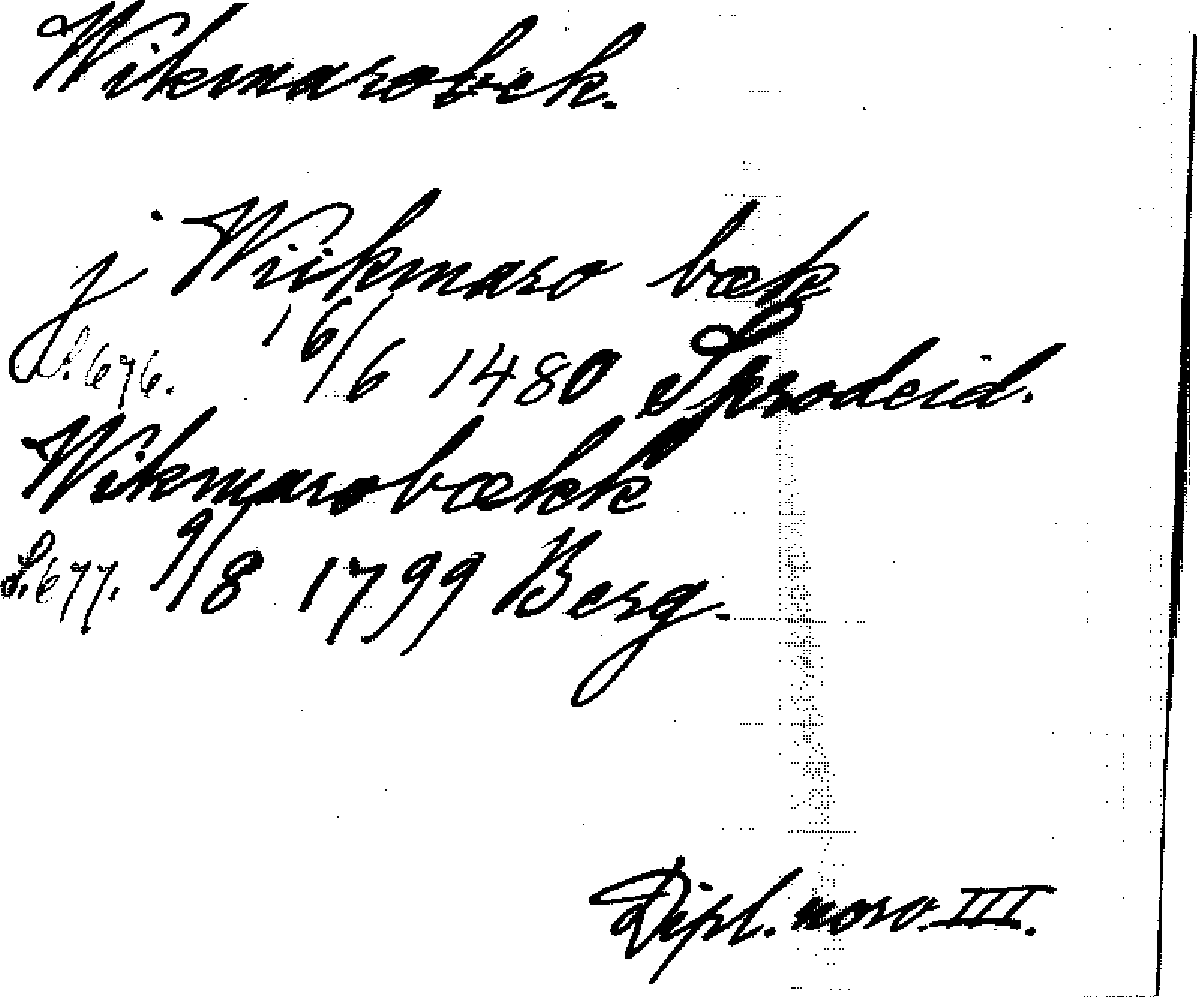 Wikmarobek.
j Wiikmaro bæk
S. 676. 16/6 1480
Wikmarobækk
S. 677. 9/8 1799 Berg.
Dipl. norv. III.